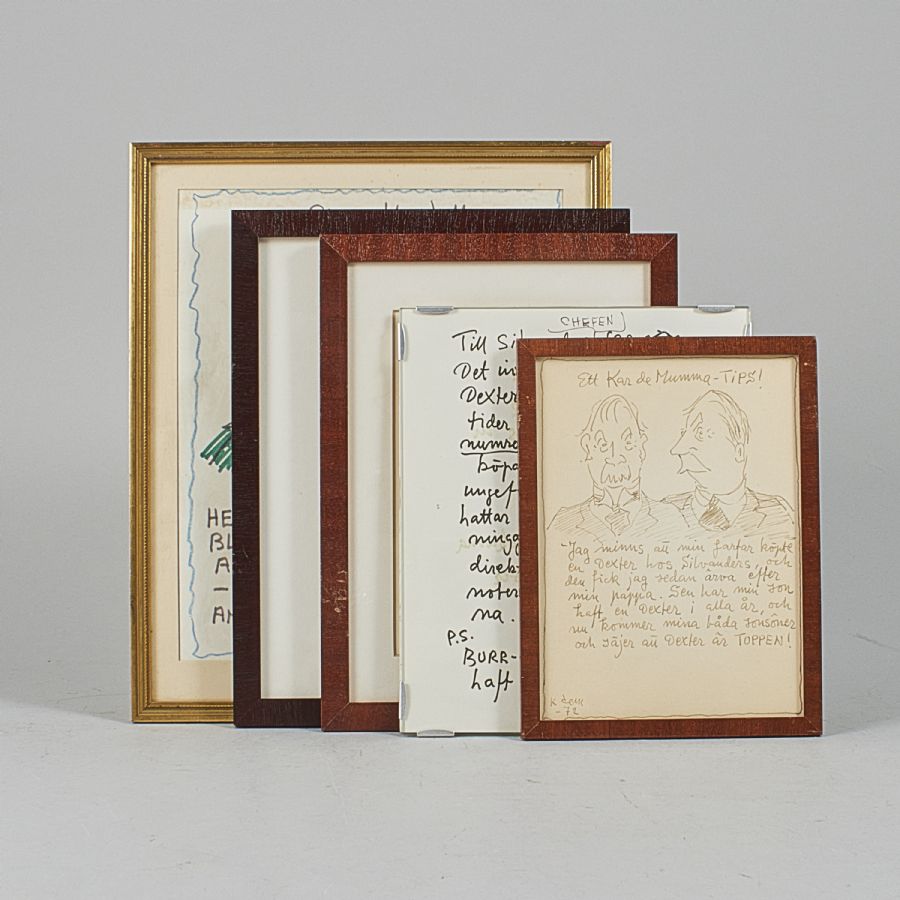 HE
BL
A
-
AN
CHEFEN
Till
Det
Dexter
tider
numre
köpa
ungef
hattar
mingg
direkt
noter
na.
P.S.
BURR-
haft
Ett Kar de Mumma-TIPS!
-Jag minns att min farfar köpte
en Dexter hos Silvanders, och
den fick jag sedan ärva efter
min pappa. Sen har min son
haft en Dexter i alla år, och
nu kommer mina båda sonsöner
och säjer att Dexter är TOPPEN!
-72